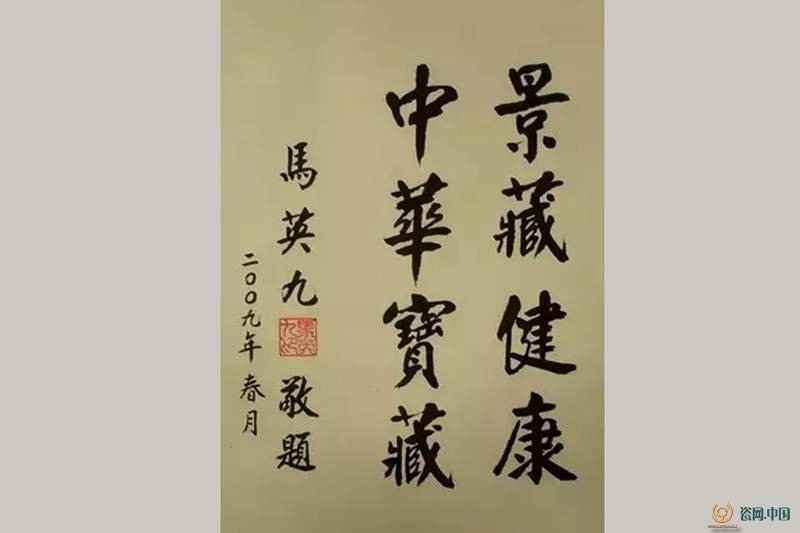 景藏健康
中華寶藏
馬英九
敬題
二〇〇九年春月
瓷网.中国